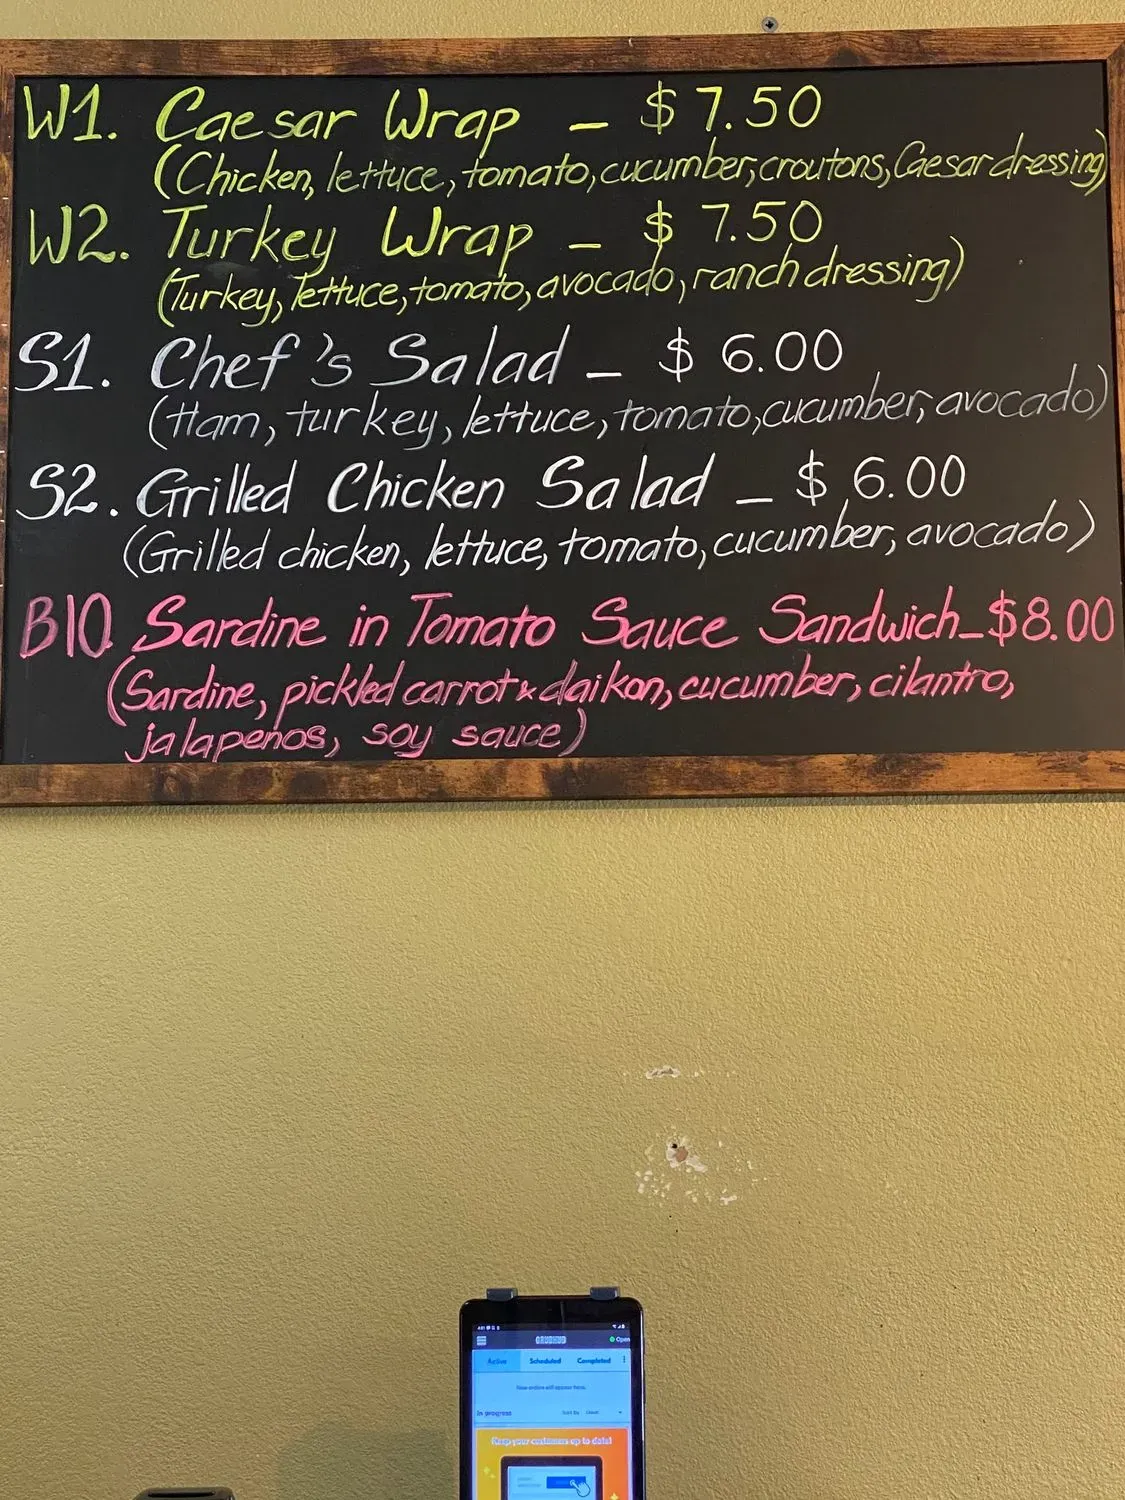 W1. Caesar Wrap - $7.50
(Chicken, lettuce, tomato, cucumber, croutons, Caesar dressing)
W2. Turkey Wrap - $7.50
(Turkey, lettuce, tomato, avocado, ranch dressing)
S1. Chef's Salad - $6.00
(Ham, turkey, lettuce, tomato, cucumber, avocado)
S2. Grilled Chicken Salad - $6.00
(Grilled chicken, lettuce, tomato, cucumber, avocado)
B10 Sardine in Tomato Sauce Sandwich - $8.00
(Sardine, pickled carrot & daikon, cucumber, cilantro,
jalapeños, soy sauce)
GRUBHUB Open
Active Scheduled Completed
New orders will appear here.
In progress Sort By
Keep your customers up to date!